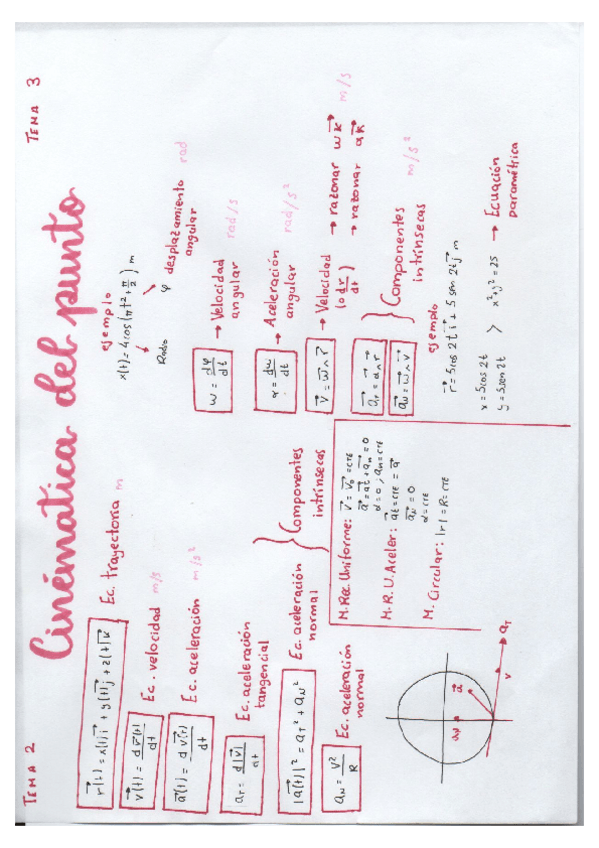 TEMA 2
Cinématica del punto
TEMA 3
r⃗(t) = x(t)i⃗ + y(t)j⃗ + z(t)k⃗
Ec. trayectoria m
v⃗(t) = d r⃗(t)/dt
Ec. velocidad m/s
a⃗(t) = d v⃗(t)/dt
Ec. aceleración m/s²
a_T = d|v⃗|/dt
Ec. aceleración
tangencial
|a⃗(t)|² = a_T² + a_N²
Ec. aceleración
normal
Componentes
intrínsecas
a_N = V²/R
Ec. aceleración
normal
M. Rec. Uniforme: v⃗ = v⃗₀ = cte
a⃗ = a⃗t + a⃗n = 0
α = 0 ; an = cte
M.R.U. Aceler: a⃗t = cte = a⃗
a⃗N = 0
α = cte
M. Circular: |r| = R = cte
a⃗N
a⃗
v
a⃗T
ejemplo
x(t) = 4 cos(πt² + π/2) m
Radio
φ desplazamiento
angular rad
ω = dφ/dt
→ Velocidad
angular rad/s
α = dω/dt
→ Aceleración
angular rad/s²
v⃗ = ω⃗ ∧ r⃗
→ Velocidad
(o dr⃗/dt)
→ razonar ωk⃗ m/s
→ razonar αk⃗
a⃗T = α⃗ ∧ r⃗
a⃗N = ω⃗ ∧ v⃗
Componentes
intrínsecas m/s²
ejemplo
r⃗ = 5 cos 2t i⃗ + 5 sen 2t j⃗ m
x = 5 cos 2t
y = 5 sen 2t
> x² + y² = 25 → Ecuación
paramétrica